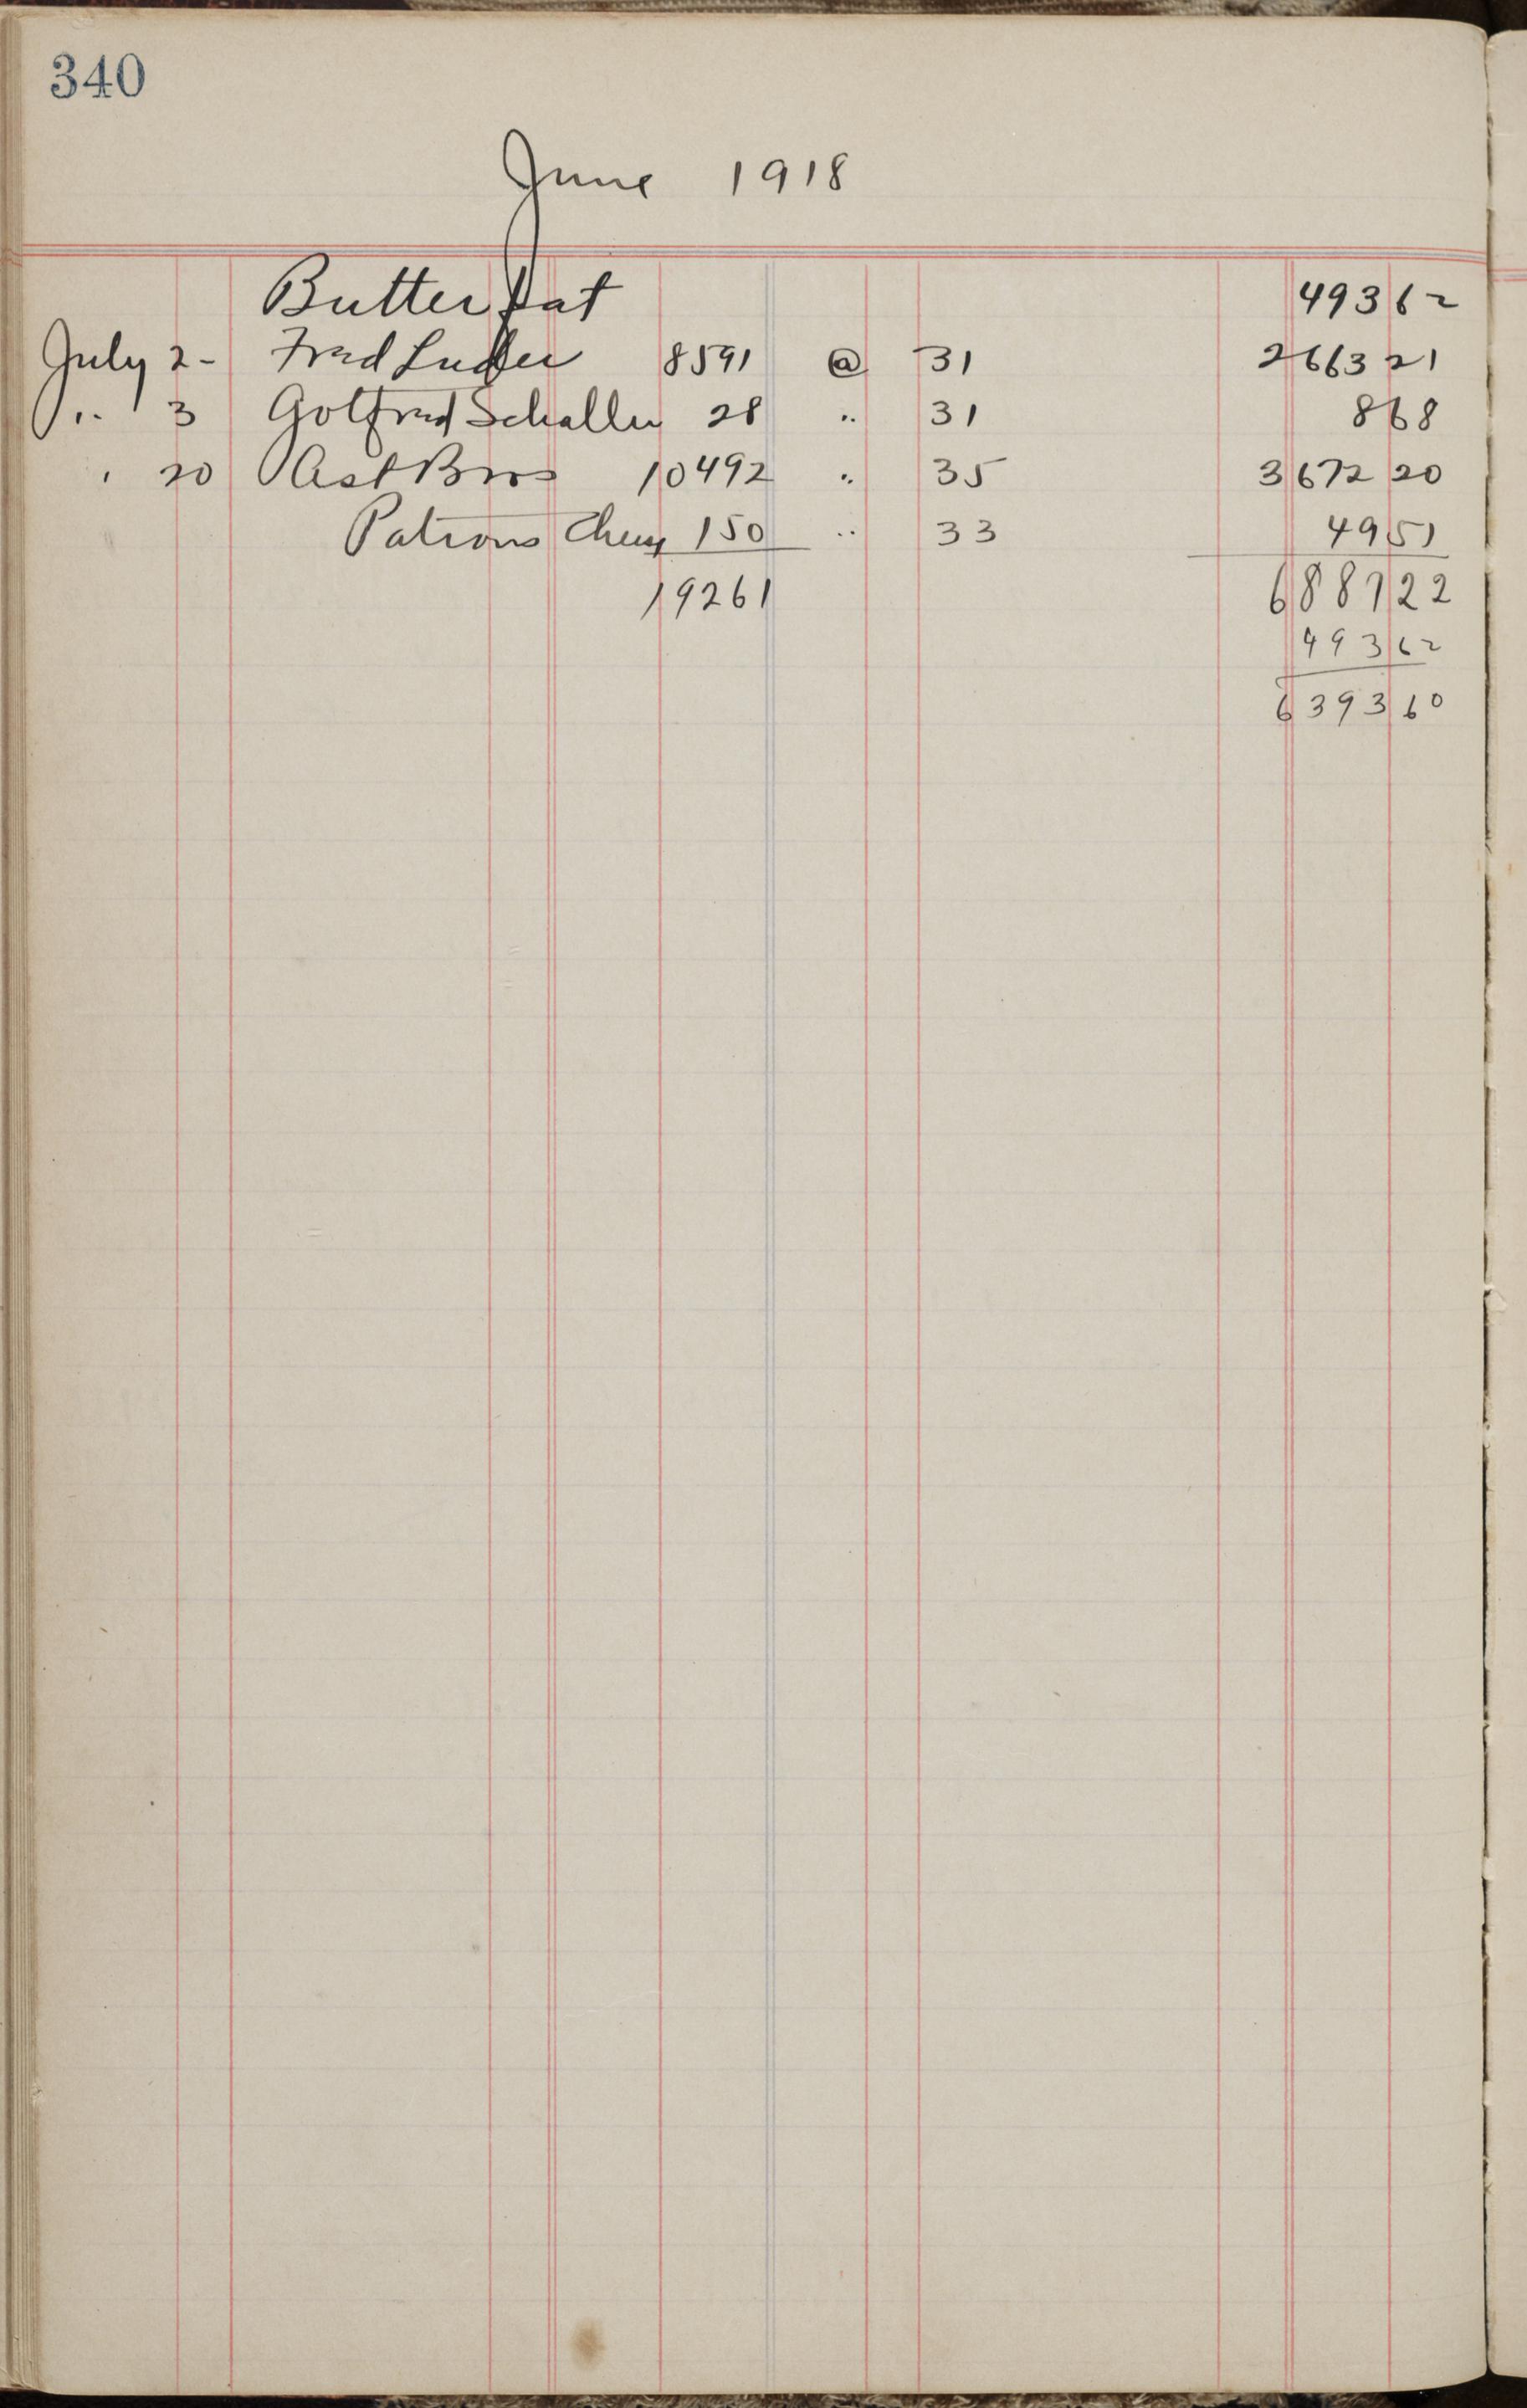 340
June 1918
Butter fat 493 62
July 2 - Fred Luder 8591 @ 31 2663 21
" 3 Gotfred Schaller 28 " 31 8 68
" 20 Ast Bros 10492 " 35 3672 20
Patrons Chees 150 " 33 49 51
19261 6887 22
493 62
6393 60